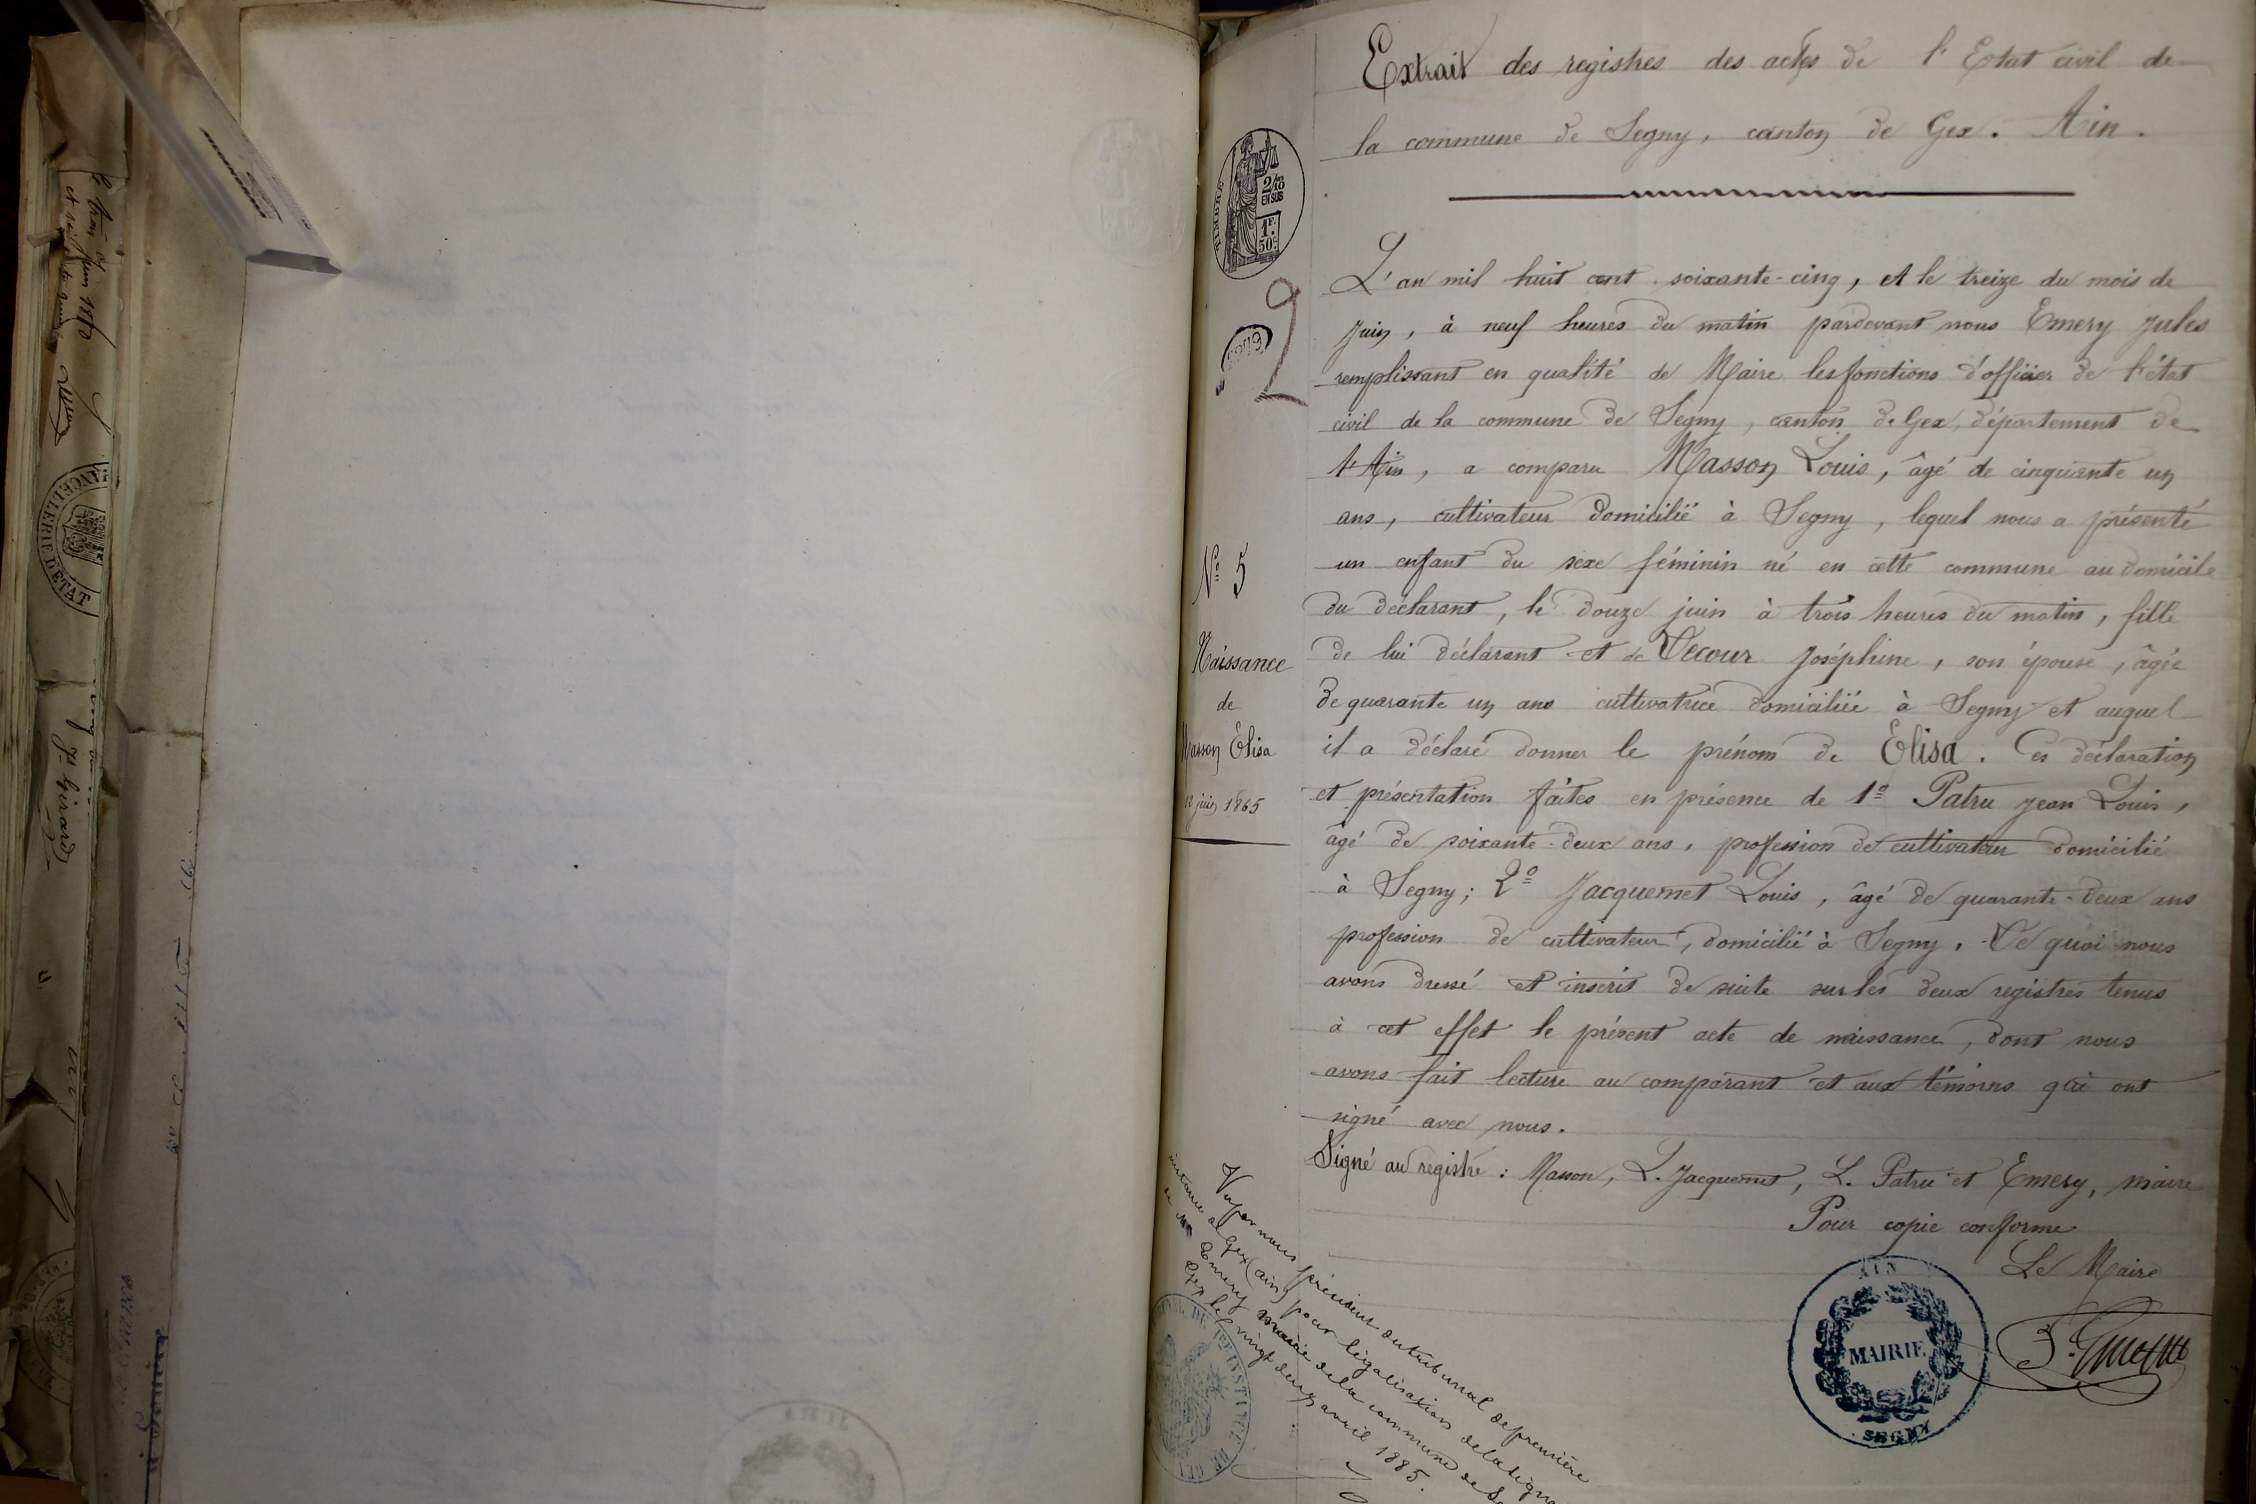 Extrait des registres des actes de l'Etat civil de
la commune de Segny, canton de Gex. Ain.
TIMBRE
2/10
EN SUS
1F.
50c.
2
L'an mil huit cent soixante-cinq, et le treize du mois de
juin, à neuf heures du matin pardevant nous Emery Jules
remplissant en qualité de Maire les fonctions d'officier de l'état
civil de la commune de Segny, canton de Gex, département de
l'Ain, a comparu Masson Louis, âgé de cinquante un
ans, cultivateur domicilié à Segny, lequel nous a présenté
un enfant du sexe féminin né en cette commune au domicile
du déclarant, le douze juin à trois heures du matin, fille
de lui déclarant et de Decour Joséphine, son épouse, âgée
de quarante un ans cultivatrice domiciliée à Segny et auquel
il a déclaré donner le prénom de Elisa. Ces déclaration
et présentation faites en présence de 1o Patru Jean Louis,
âgé de soixante-deux ans, profession de cultivateur domicilié
à Segny; 2o Jacquemet Louis, âgé de quarante-deux ans
profession de cultivateur, domicilié à Segny. De quoi nous
avons dressé et inscrit de suite sur les deux registres tenus
à cet effet le présent acte de naissance, dont nous
avons fait lecture au comparant et aux témoins qui ont
signé avec nous.
Signé au registre : Masson, L. Jacquemet, L. Patru et Emery, maire
Pour copie conforme
Le Maire
J. Emery
AIN
MAIRIE
SEGNY
No 5
Naissance
de
Masson Elisa
12 juin 1865
Vu par nous président du tribunal de première
instance de Gex (ain) pour légalisation de la signa
de Mr Emery maire de la commune de Se
Gex le vingt deux avril 1885.
CHANCELLERIE D'ÉTAT
juin 1880
Girard